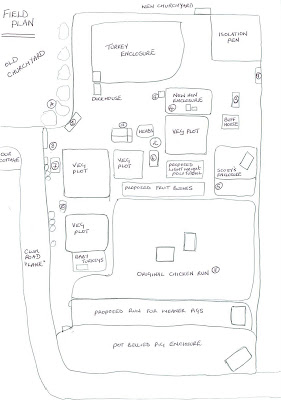 FIELD
PLAN
NEW CHURCHYARD
OLD
CHURCHYARD
TURKEY
ENCLOSURE
ISOLATION
PEN
DUCKHOUSE
NEW HEN
ENCLOSURE
HERBS
VEG PLOT
BUFF
HOUSE
OUR
COTTAGE
VEG
PLOT
VEG
PLOT
PROPOSED
LIGHTWEIGHT
POLYTUNNEL
PROPOSED FRUIT BUSHES
VEG
PLOT
BABY
TURKEYS
ORIGINAL CHICKEN RUN
ROAD
"LANE"
PROPOSED RUN FOR WEANER PIGS
POT BELLIED PIG ENCLOSURE